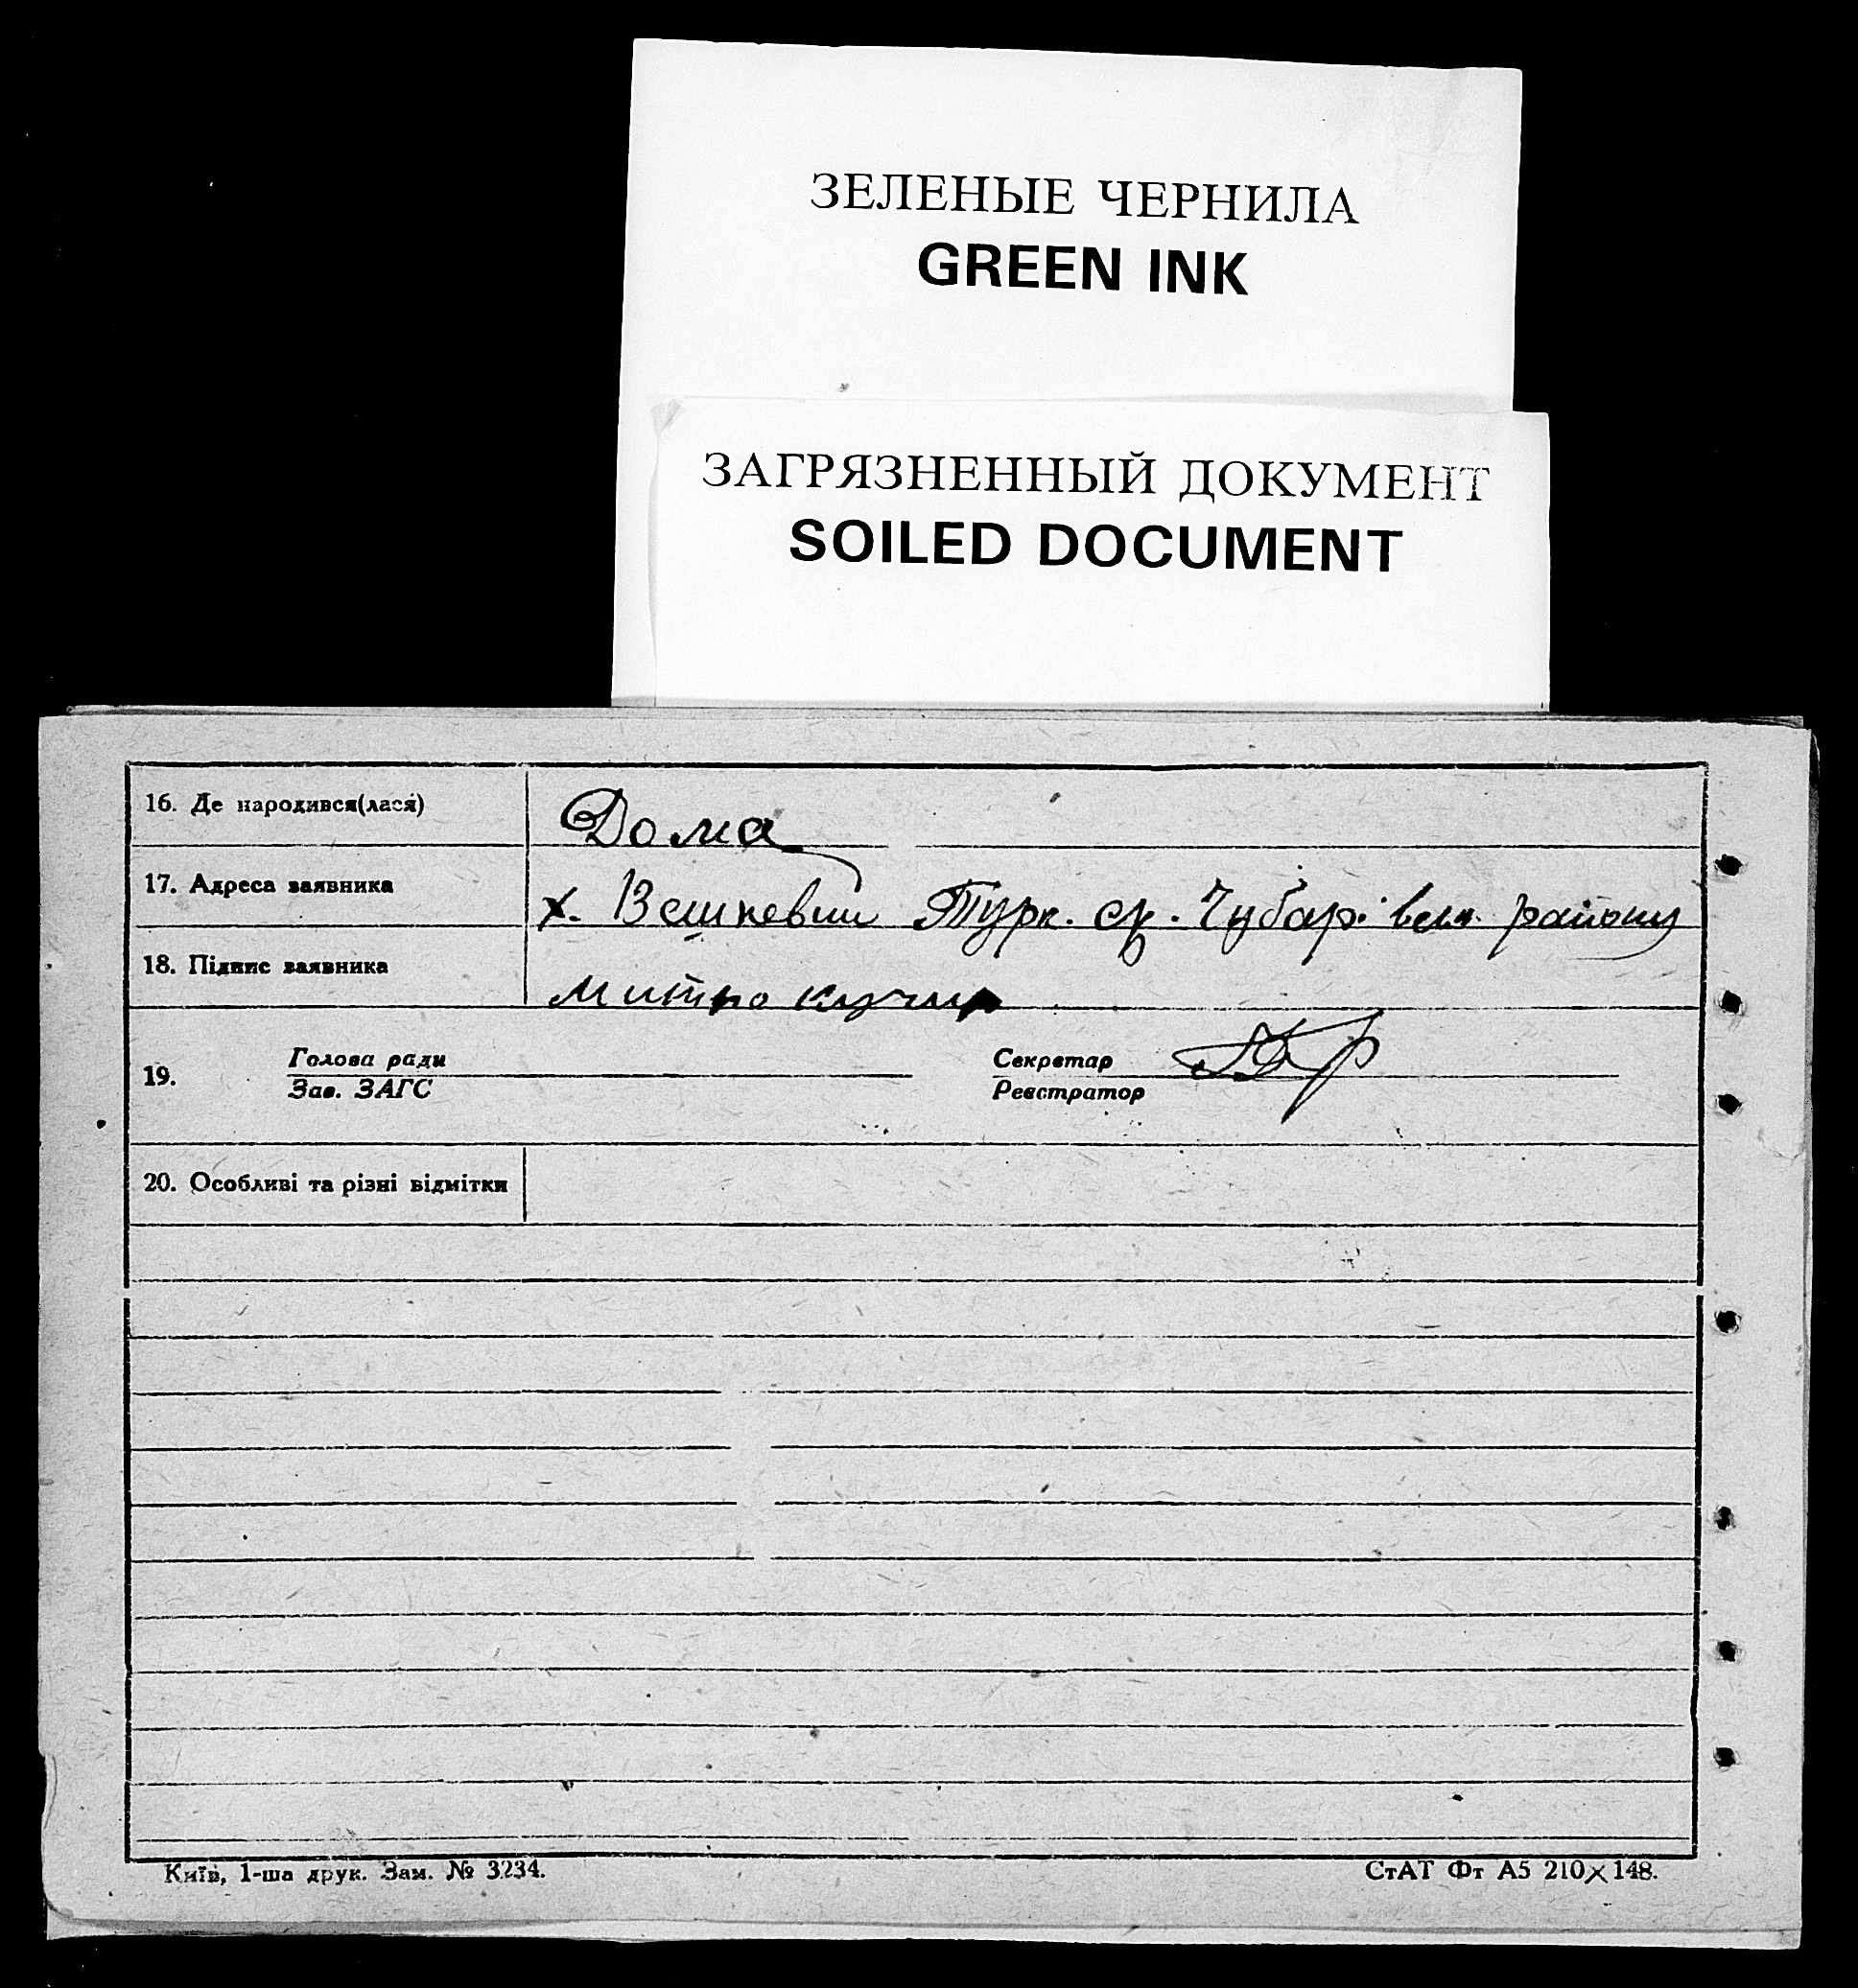 ЗЕЛЕНЫЕ ЧЕРНИЛА
GREEN INK
ЗАГРЯЗНЕННЫЙ ДОКУМЕНТ
SOILED DOCUMENT
16. Де народився(лася) Дома
17. Адреса заявника х. Турк. с/р. Чубар. району
18. Підпис заявника Митро кучир
19. Голова ради Секретар
Зав. ЗАГС Реєстратор
20. Особливі та різні відмітки
Київ, 1-ша друк. Зам. № 3234.
СтАТ Фт А5 210×148.